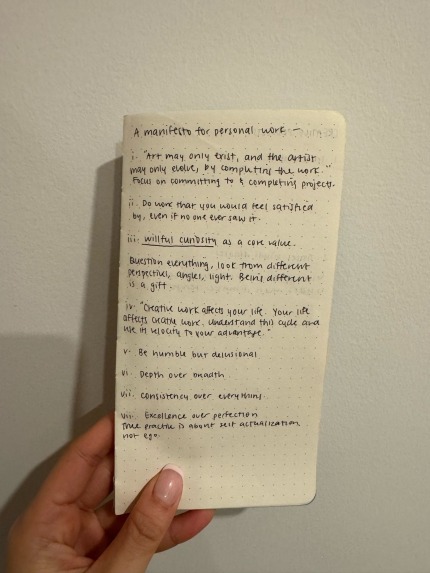 A manifesto for personal work –
i. "Art may only exist, and the artist
may only evolve, by completing the work."
Focus on committing to & completing projects.
ii. Do work that you would feel satisfied
by, even if no one ever saw it.
iii. willful curiosity as a core value.
Question everything, look from different
perspectives, angles, light. Being different
is a gift.
iv. "Creative work affects your life. Your life
affects creative work. Understand this cycle and
use its velocity to your advantage."
v. Be humble but delusional
vi. Depth over breadth
vii. Consistency over everything.
viii. Excellence over perfection
True practice is about self actualization
not ego.